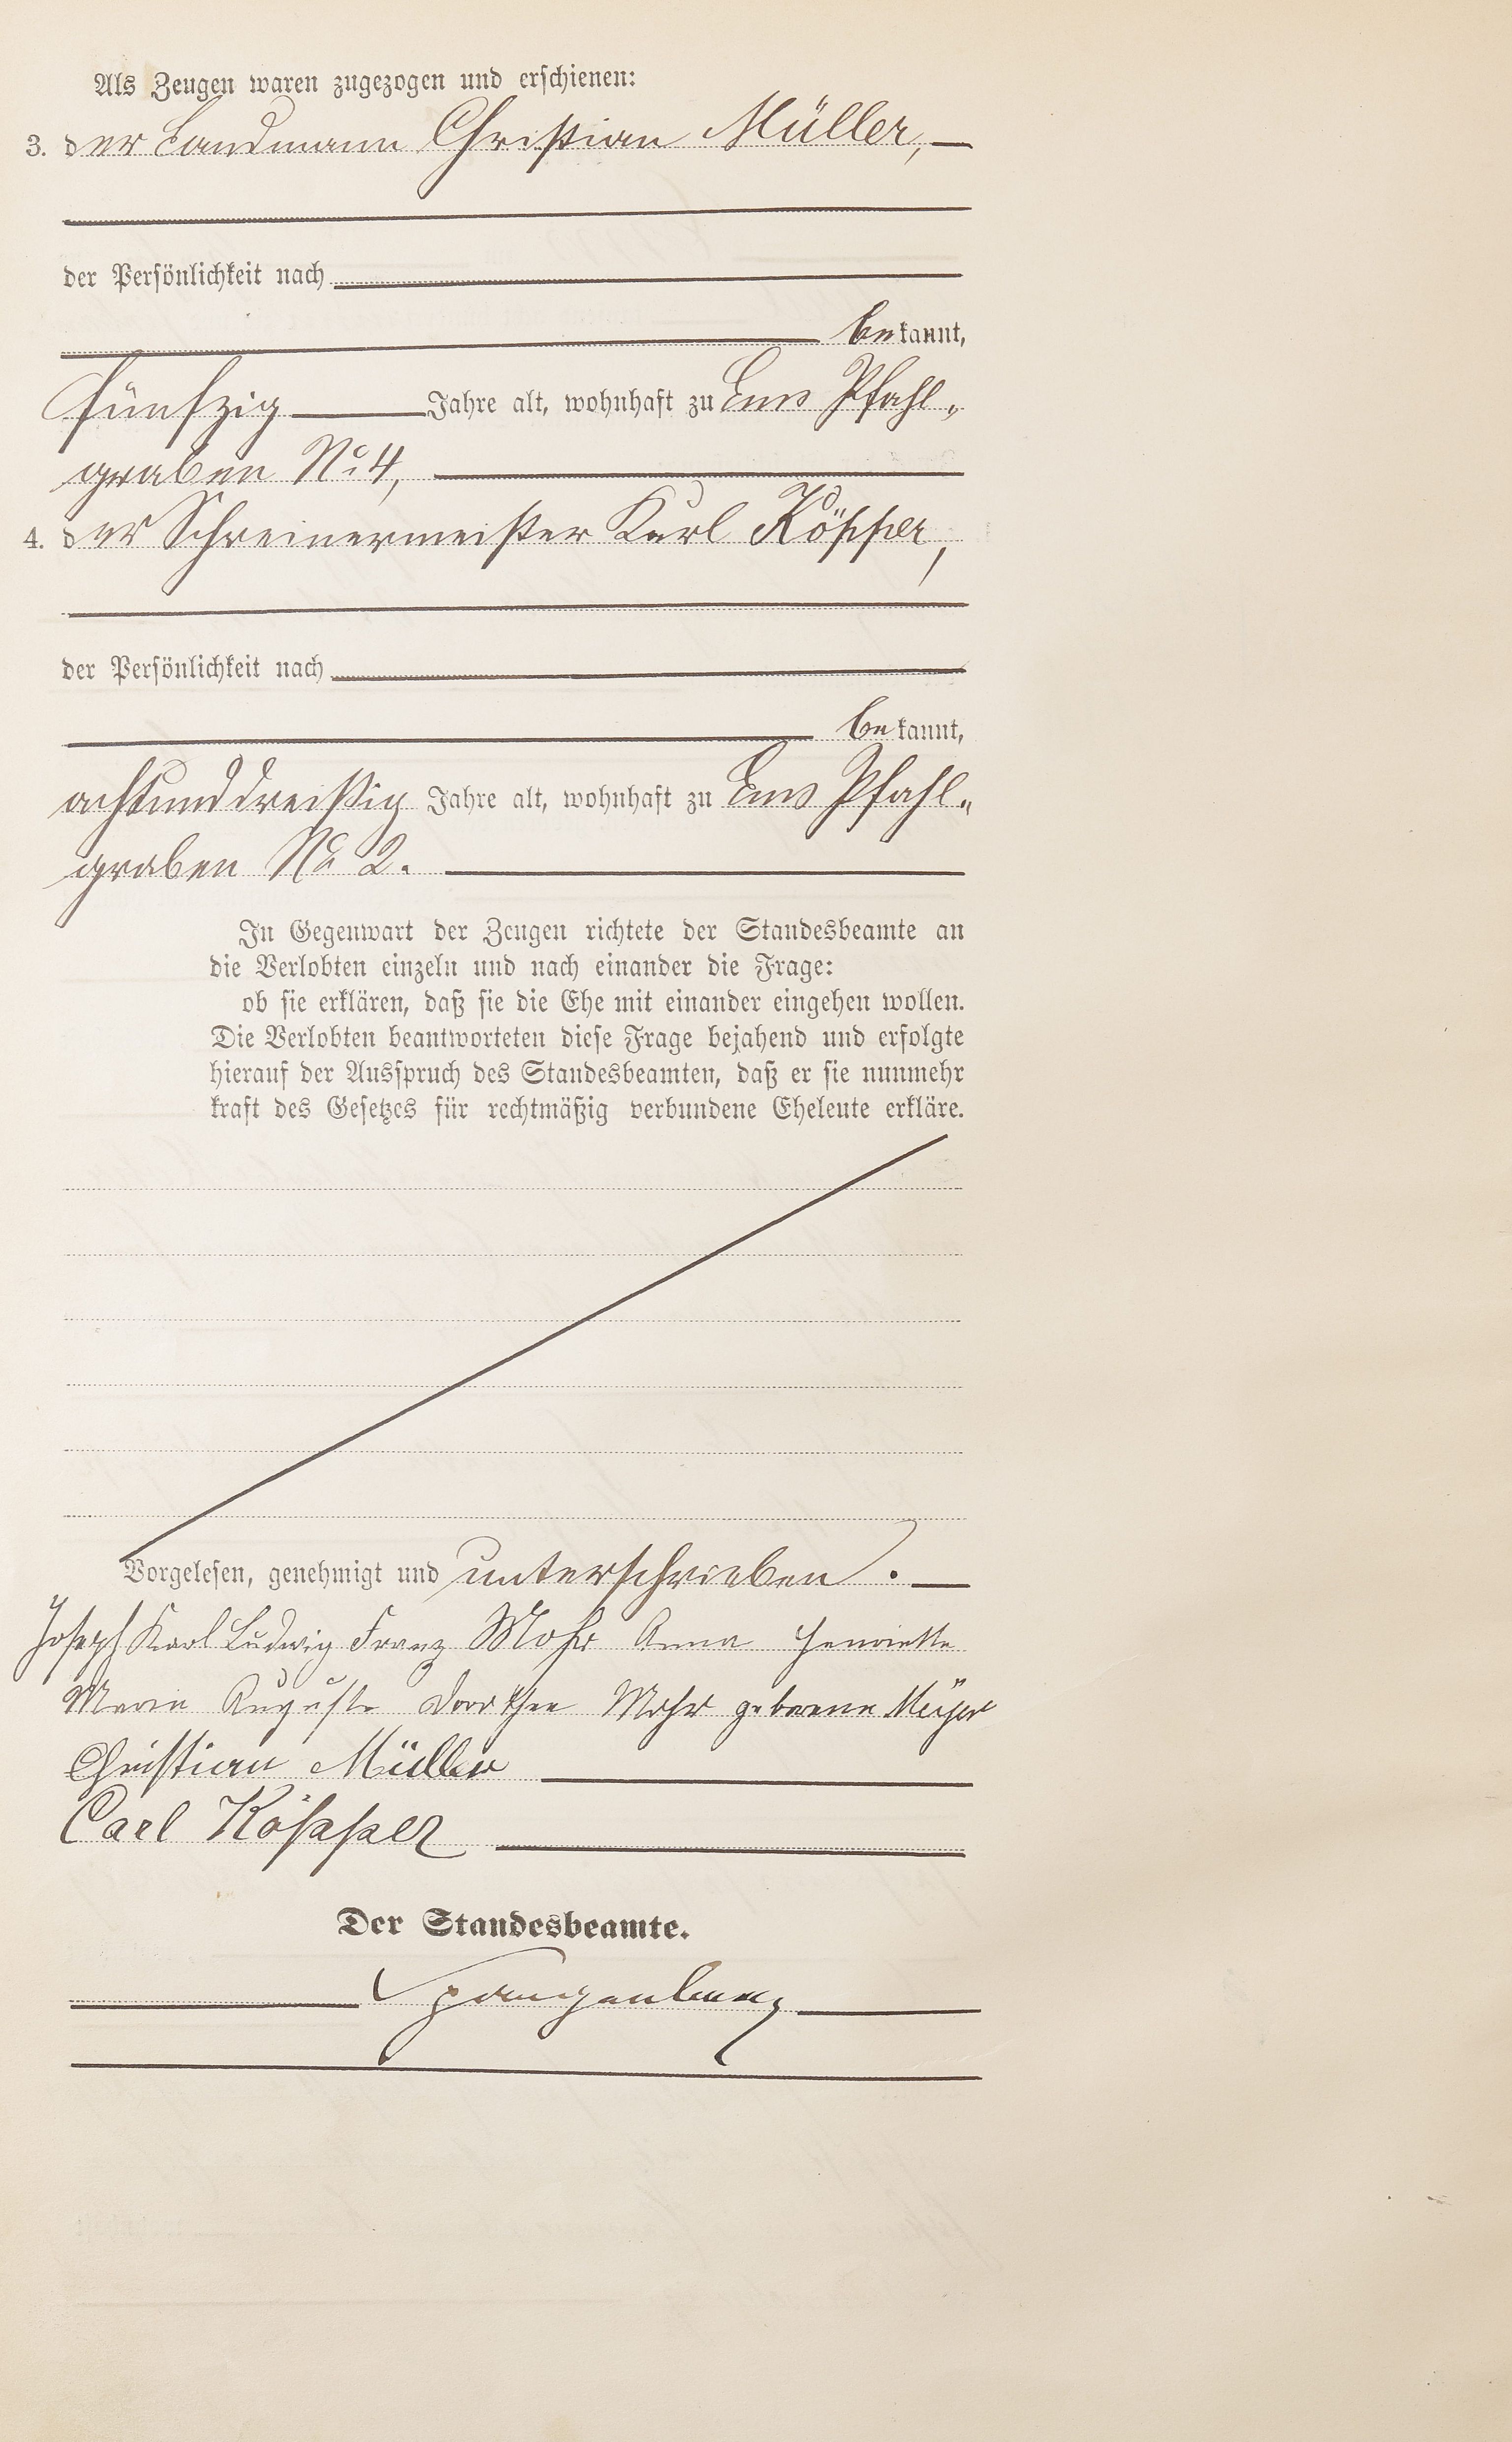 Als Zeugen waren zugezogen und erschienen:
3. der Landmann Christian Müller,
der Persönlichkeit nach
bekannt,
fünfzig Jahre alt, wohnhaft zu Ems Pfahl-
graben No 4,
4. der Schreinermeister Karl Köpper,
der Persönlichkeit nach
bekannt,
achtunddreißig Jahre alt, wohnhaft zu Ems Pfahl-
graben No 2.
In Gegenwart der Zeugen richtete der Standesbeamte an
die Verlobten einzeln und nach einander die Frage:
ob sie erklären, daß sie die Ehe mit einander eingehen wollen.
Die Verlobten beantworteten diese Frage bejahend und erfolgte
hierauf der Ausspruch des Standesbeamten, daß er sie nunmehr
kraft des Gesetzes für rechtmäßig verbundene Eheleute erkläre.
Vorgelesen, genehmigt und unterschrieben.
Joseph Karl Ludwig Franz Mohr Anna Henriette
Marie Auguste Dorothee Mohr geborene Meÿer
Christian Müller
Carl Köpper
Der Standesbeamte.
Spangenberg